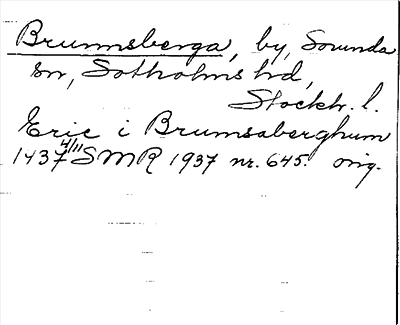 Brunnsberga, by, Sorunda
sn, Sotholms hd,
Stockh. l.
Eric i Brumsaberghum
1437 4/11 SMR 1937 nr. 645. orig.